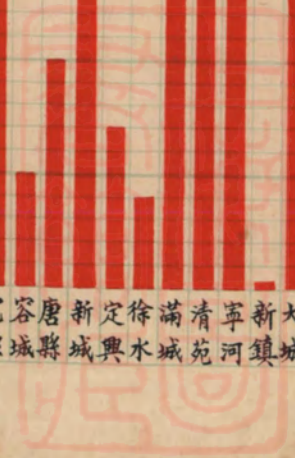 容城
唐縣
新城
定興
徐水
滿城
清苑
寧河
新鎮
大城